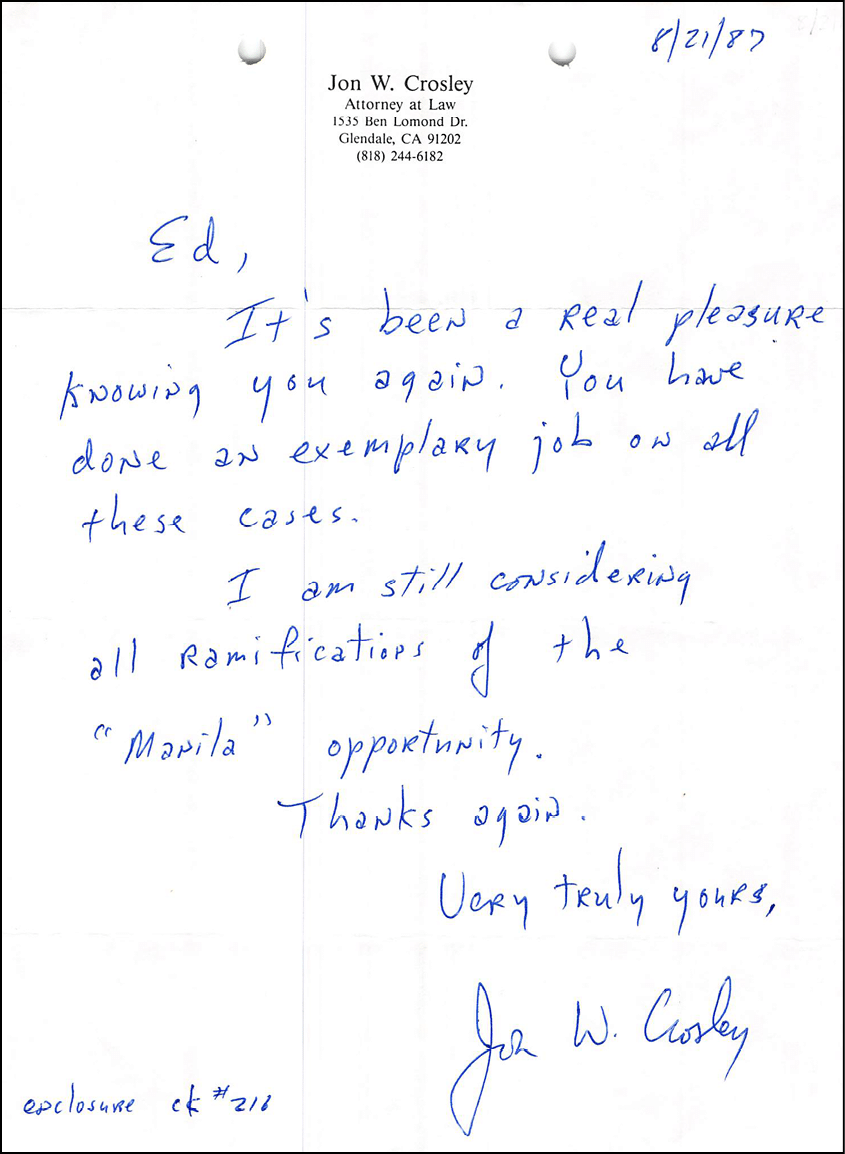 8/21/87
Jon W. Crosley
Attorney at Law
1535 Ben Lomond Dr.
Glendale, CA 91202
(818) 244-6182
Ed,
It's been a real pleasure
knowing you again. You have
done an exemplary job on all
these cases.
I am still considering
all ramifications of the
"Manila" opportunity.
Thanks again.
Very truly yours,
Jon W. Crosley
enclosure ck #216